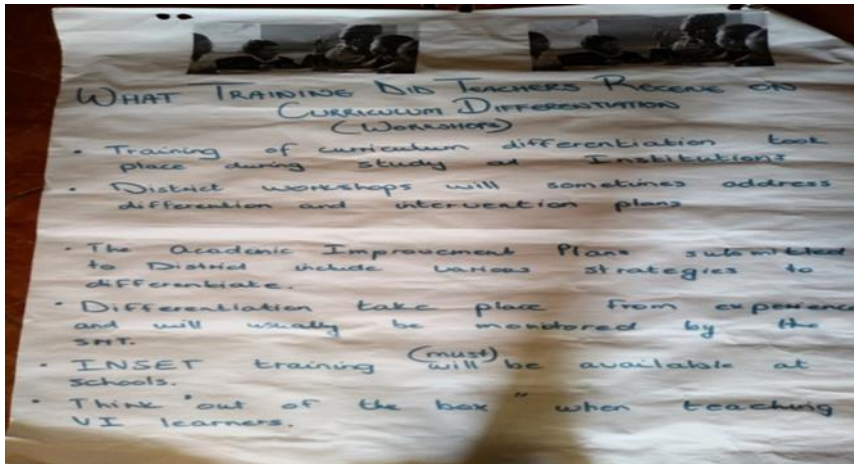 WHAT TRAINING DID TEACHERS RECEIVE ON
CURRICULUM DIFFERENTIATION
(WORKSHOPS)
• Training of curriculum differentiation took
place during study at Institutions
• District workshops will sometimes address
differention and intervention plans
• The Academic Improvement Plans submitted
to District include various strategies to
differentiate.
• Differentiation take place from experience
and will usually be monitored by the
SMT.
• INSET training (must) will be available at
schools.
• Think "out of the box" when teaching
VI learners.